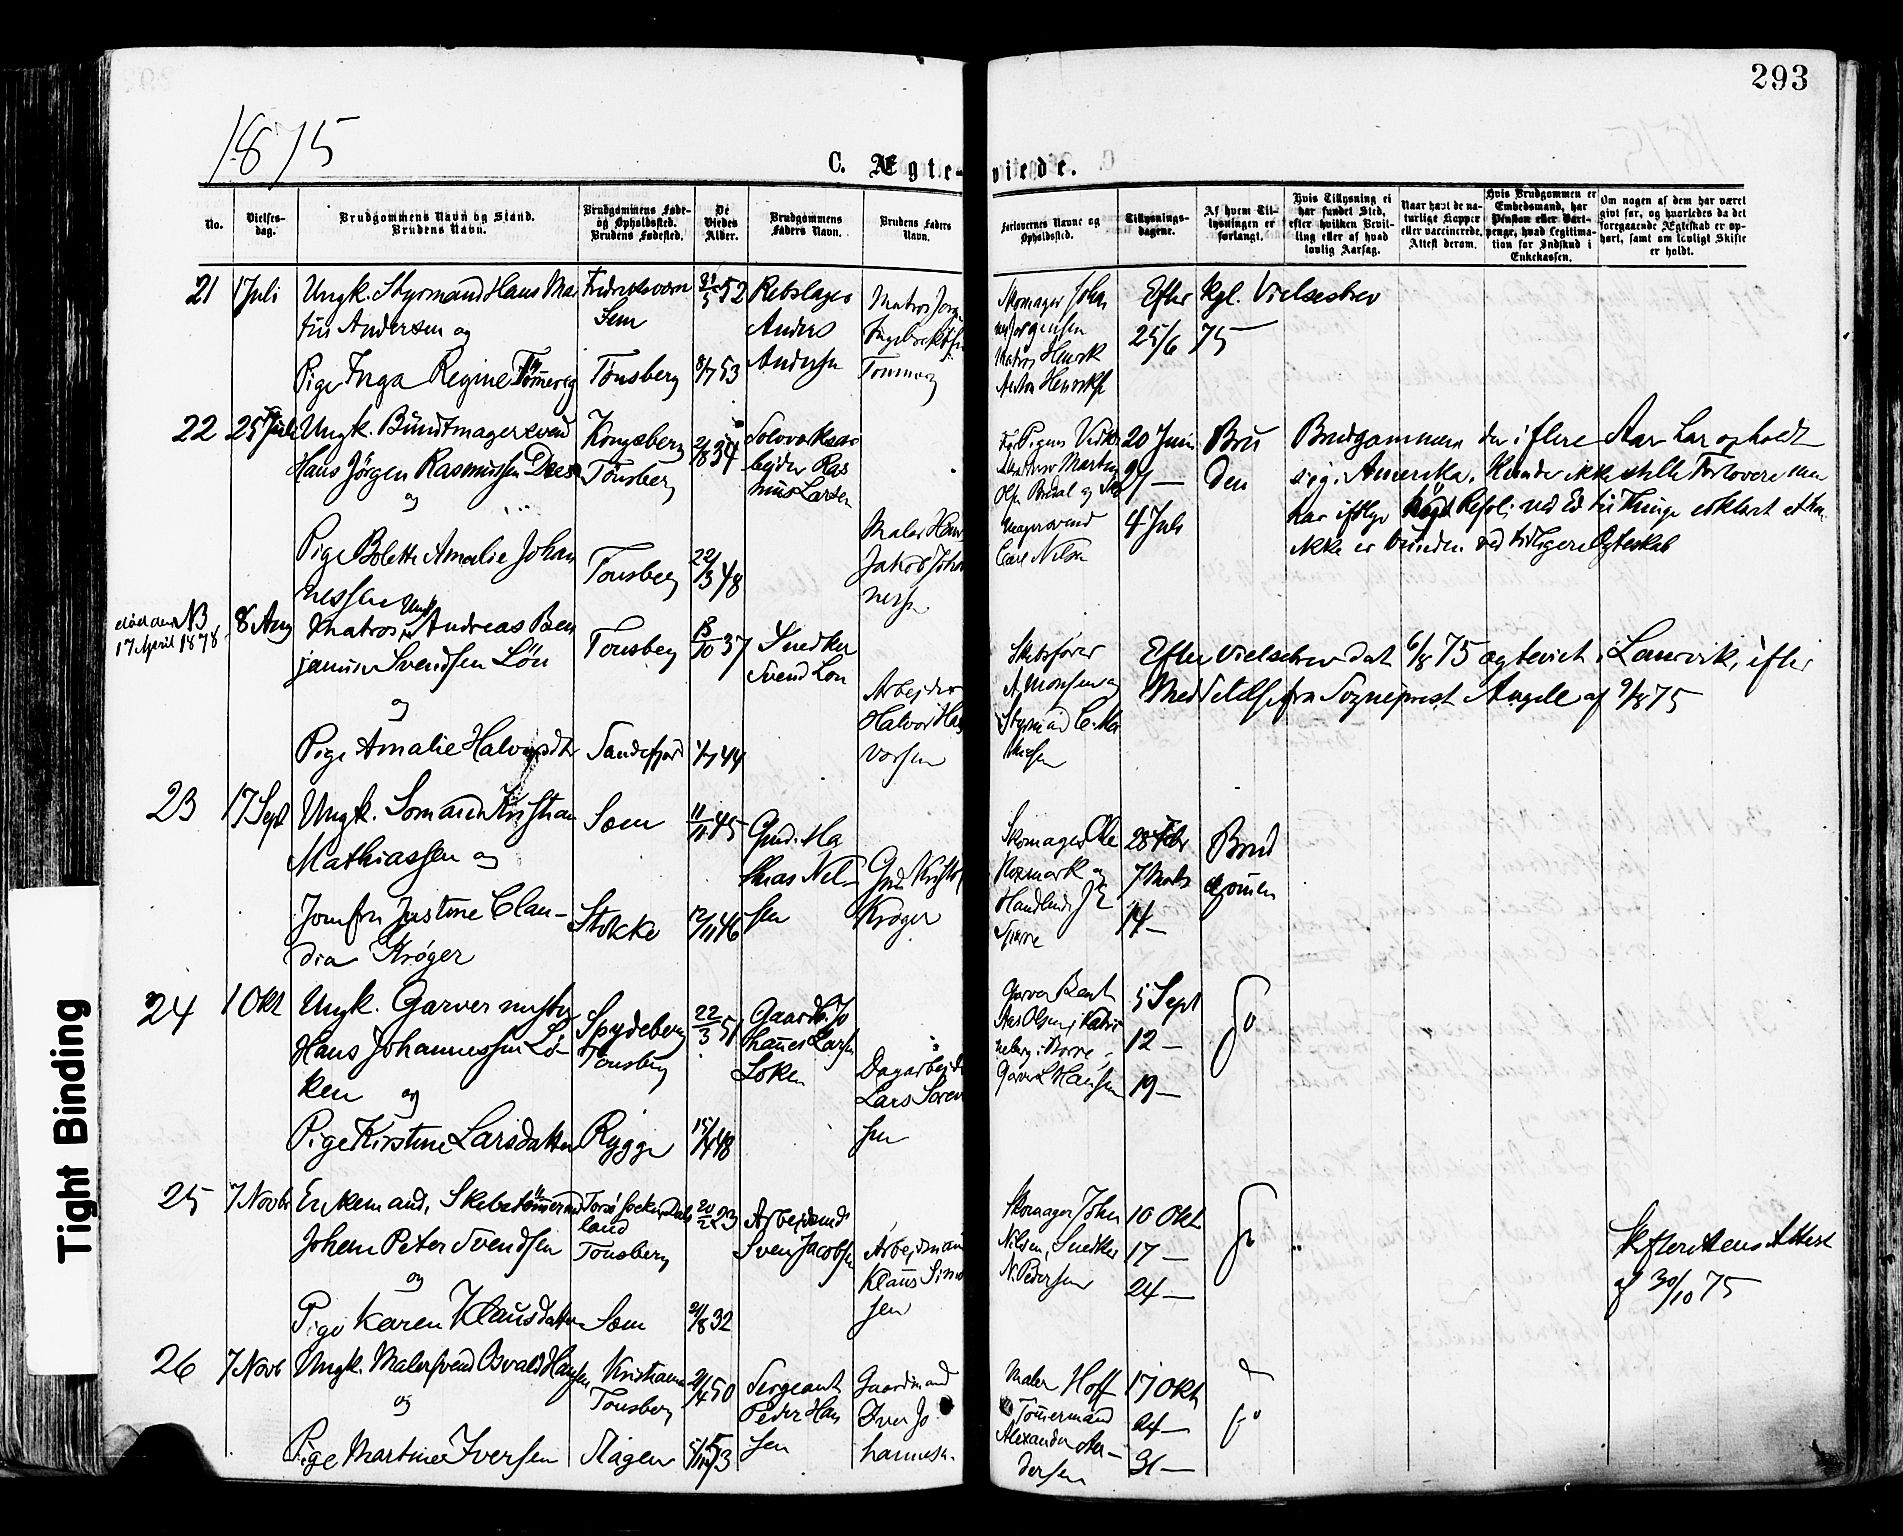 293
1875
C. Ægte-viede.
No.
Vielses-
dag.
Brudgommens Navn og Stand.
Brudens Navn.
Brudgommens Føde-
og Opholdssted.
Brudens Fødested.
De
Viedes
Alder.
Brudgommens
Faders Navn.
Brudens Faders
Navn.
Forlovernes Navne og
Opholdssted.
Tillysnings-
dagene.
Af hvem Til-
lysningen er
forlangt.
Hvis Tillysning ei
har fundet Sted,
efter hvilken Bevil-
ling eller af hvad
lovlig Aarsag.
Naar havt de na-
turlige Kopper
eller vaccinerede,
Attest derom.
Hvis Brudgommen er
Embedsmand, har
Pension eller Vart-
penge, hvad Legitima-
tion for Indskud i
Enkekassen.
Om nogen af dem har været
givt før, og hvorledes da det
foregaaende Ægteskab er op-
hørt, samt om lovligt Skifte
er holdt.
21
1 Juli
Ungk. Styrmand Hans Ma
tius Andersen og
Pige Inga Regine Tømmerv
Fredriksværn
Sem
Tønsberg
52
8/7 53
Rebslager
Anders
Andersen
Matros
Skomager Johan
nes Jørgensen
Matros Henrik
Anton
Efter kgl. Vielsesbrev
25/6 75
22
25 Juli
Ungk. Bundtmagersvend
Hans Jörgen Rasmussen Dres
og
Pige Bolette Amalie Johan
nessen
Kongsberg
Tönsberg
Tonsberg
34
22/3 48
Solvværksar
beider Ras
mus Larsen
Maler Hans
Jakob Joha
nessen
Martin
Olsen
magersvend
Carl Nilsen
20 Juni
27 —
4 Juli
Bru
den
Brudgommen der i flere Aar har opholdt
sig i Amerika, kunde ikke stille Forlovere men
har ifølge kgl Resol: ved Ed til Thinge erklært at han
ikke er bunden ved tidligere Ægteskab
død den
17 April 1878
NB
8 Aug
Matros Ungk Andreas Ben
jamin Svendsen Lön
og
Pige Amalie Halvorsdtr
Tonsberg
Sandefjord
37
44
Snedker
Svend Lön
Arbejder
Halvor Hal
vorsen
Skibsfører
A. Monsen og
Styrmand C. Ma
thiesen
Efter Vielsebrev dat 6/8 75 ægteviet i Laurvik, ifter
Meddelelse fra Sogneprest Angell af 9/8 75
23
17 Sept
Ungk. Somand Kristian
Mathiassen og
Jomfru Justine Clau-
dia Krøger
Sæm
Stokke
11/11 45
12/11 46
Gmd. Ma
thias Nil
sen
Gmd Kristof
Krøger
Skomager Ole
Rosmark og
Handlende
Spirre
28 Febr
7 Marts
14 —
Brud
gomen
24
1 Okt
Ungk. Garvermester
Hans Johannessen Lö-
ken og
Pige Kirstine Larsdatter
Spydeberg
Tonsberg
Rygge
22/3 51
48
Gaardbr. Jo
hannes Larsen
Löken
Dagarbejder
Lars Soren
sen
Garver Bent
Aas Olsen, Kathri
neberg i Borre,
Garver L. Hansen
5 Sept
12 —
19 —
25
7 Novbr
Enkemand, Skibstømmermand
Johan Peter Svendsen
og
Pige Karen Klausdatter
land
Tonsberg
Sæm
23
32
Arbejdsmd
Sven Jacobsen
Arbejdsmand
Klaus Simon
sen
Skomager Johan
Nilsen, Snedker
N. Pedersen
10 Okt
17 —
24 —
Skifterettens Attest
af 30/10 75
26
7 Novb
Ungk. Malersvend Osvald Hansen
og
Pige Martine Iversen
Kristiania
Tonsberg
Slagen
50
53
Sergeant
Peder Han
sen
Gaardmand
Iver Jo
hannesen
Maler Hoff
Tömmermand
Alexander An-
dersen
17 Okt
24 —
31 —
Tight Binding